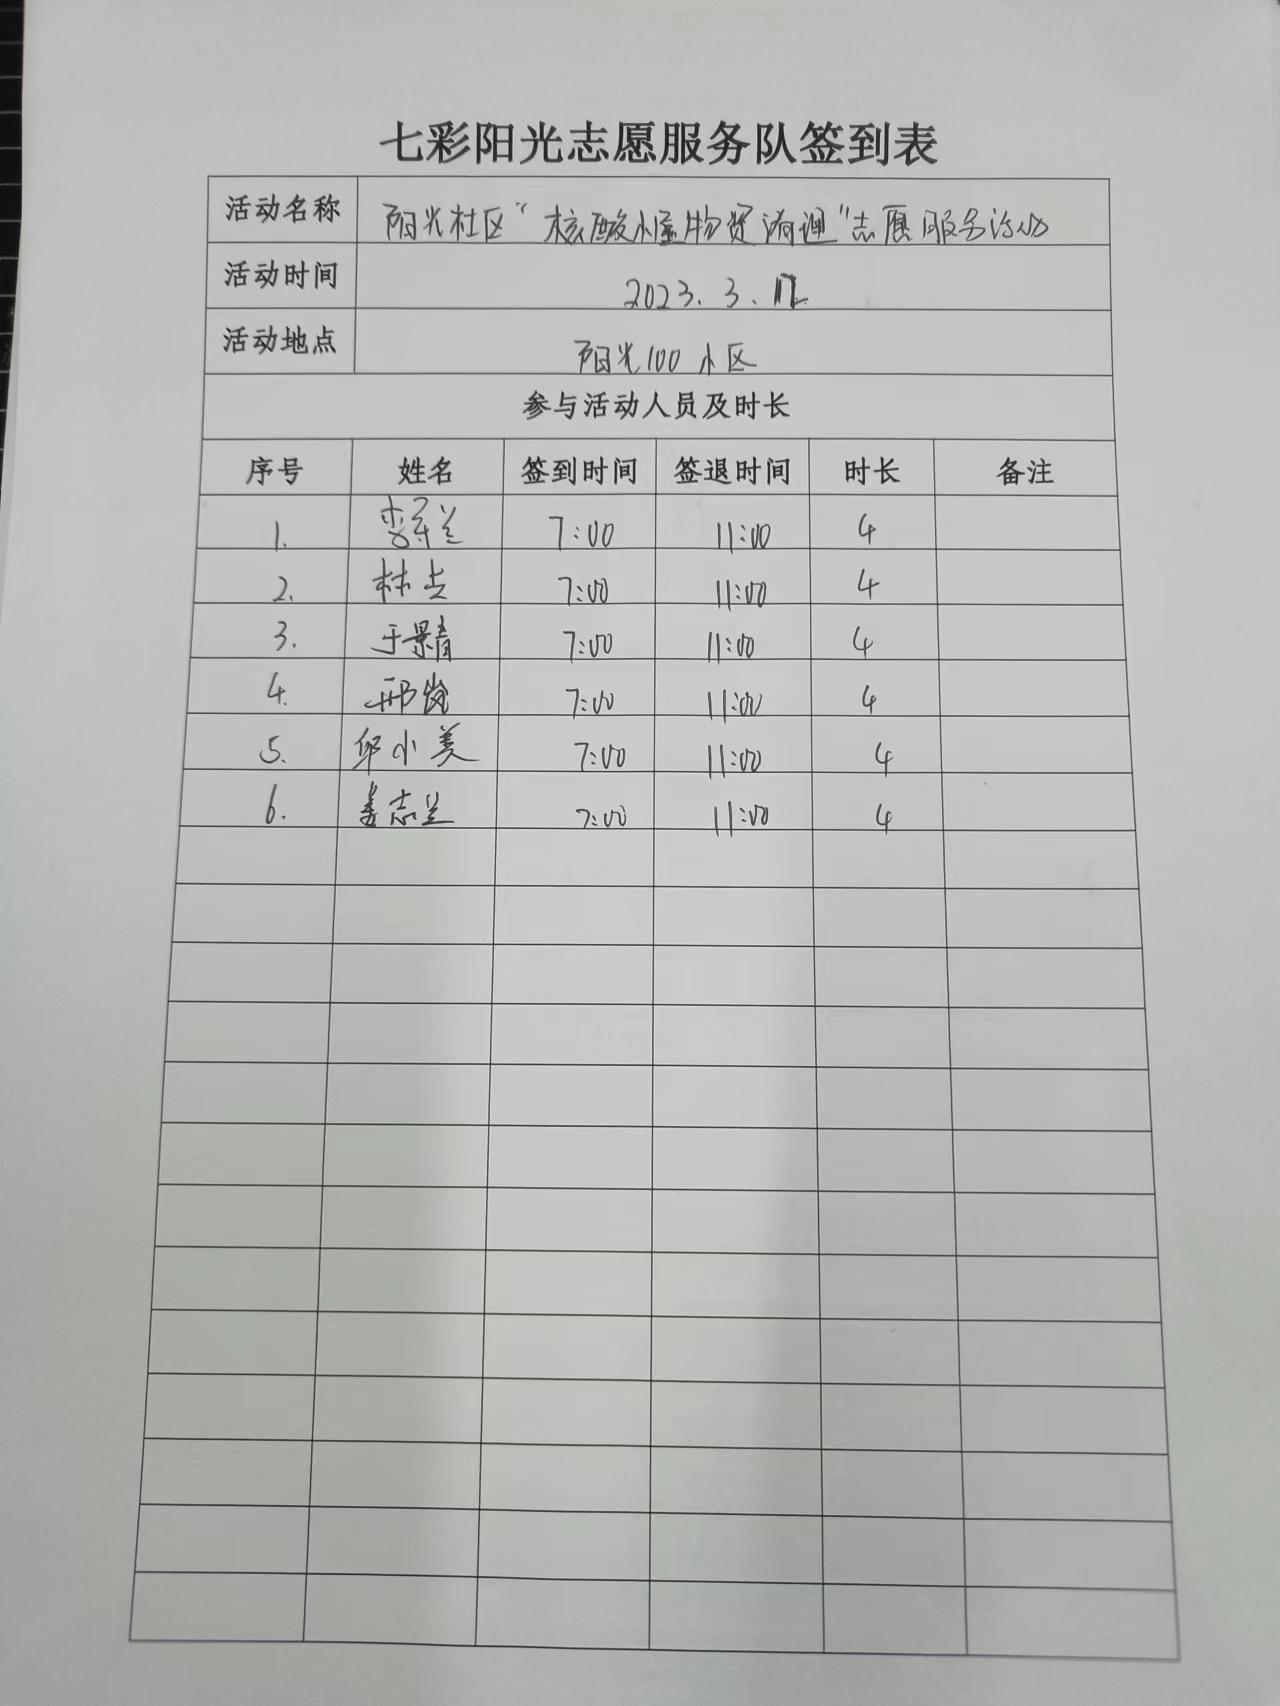 七彩阳光志愿服务队签到表
活动名称 阳光社区“核酸小屋物资清理”志愿服务活动
活动时间 2023.3.12
活动地点 阳光100小区
参与活动人员及时长
序号 姓名 签到时间 签退时间 时长 备注
1. 李军兰 7:00 11:00 4
2. 林 7:00 11:00 4
3. 于景青 7:00 11:00 4
4. 邢岗 7:00 11:00 4
5. 邱小美 7:00 11:00 4
6. 姜志兰 7:00 11:00 4